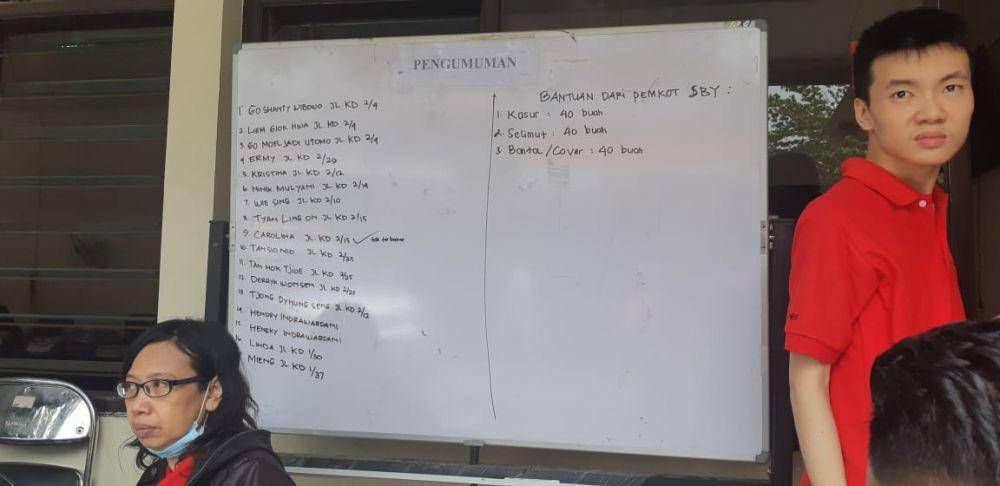 PENGUMUMAN
1. GO SHANTY WIBOWO JL KD 2/9
2. LIEM GIOK HWA JL KD 2/9
3. GO MOELJADI UTOMO JL KD 2/9
4. ERMY JL KD 2/29
5. KRISTINA JL KD 2/12
6. NINIK MULYANI JL KD 2/19
7. WIE SING JL KD 2/10
8. TYAN LING ON JL KD 2/15
9. CAROLINA JL KD 2/15
10. TAN SIO NIO JL KD 2/25
11. TAN HOK TJIOE JL KD 2/25
12. DERRYK WONSEN JL KD 2/25
13. TJONG DYHUNG SENG JL KD 2/12
14. HENDRY INDRAWARDANI
15. HENGKY INDRAWARDANI
16. LINDA JL KD 1/30
MIENG JL KD 1/37
BANTUAN DARI PEMKOT SBY :
1. Kasur : 40 buah
2. Selimut : 40 buah
3. Bantal/Cover : 40 buah